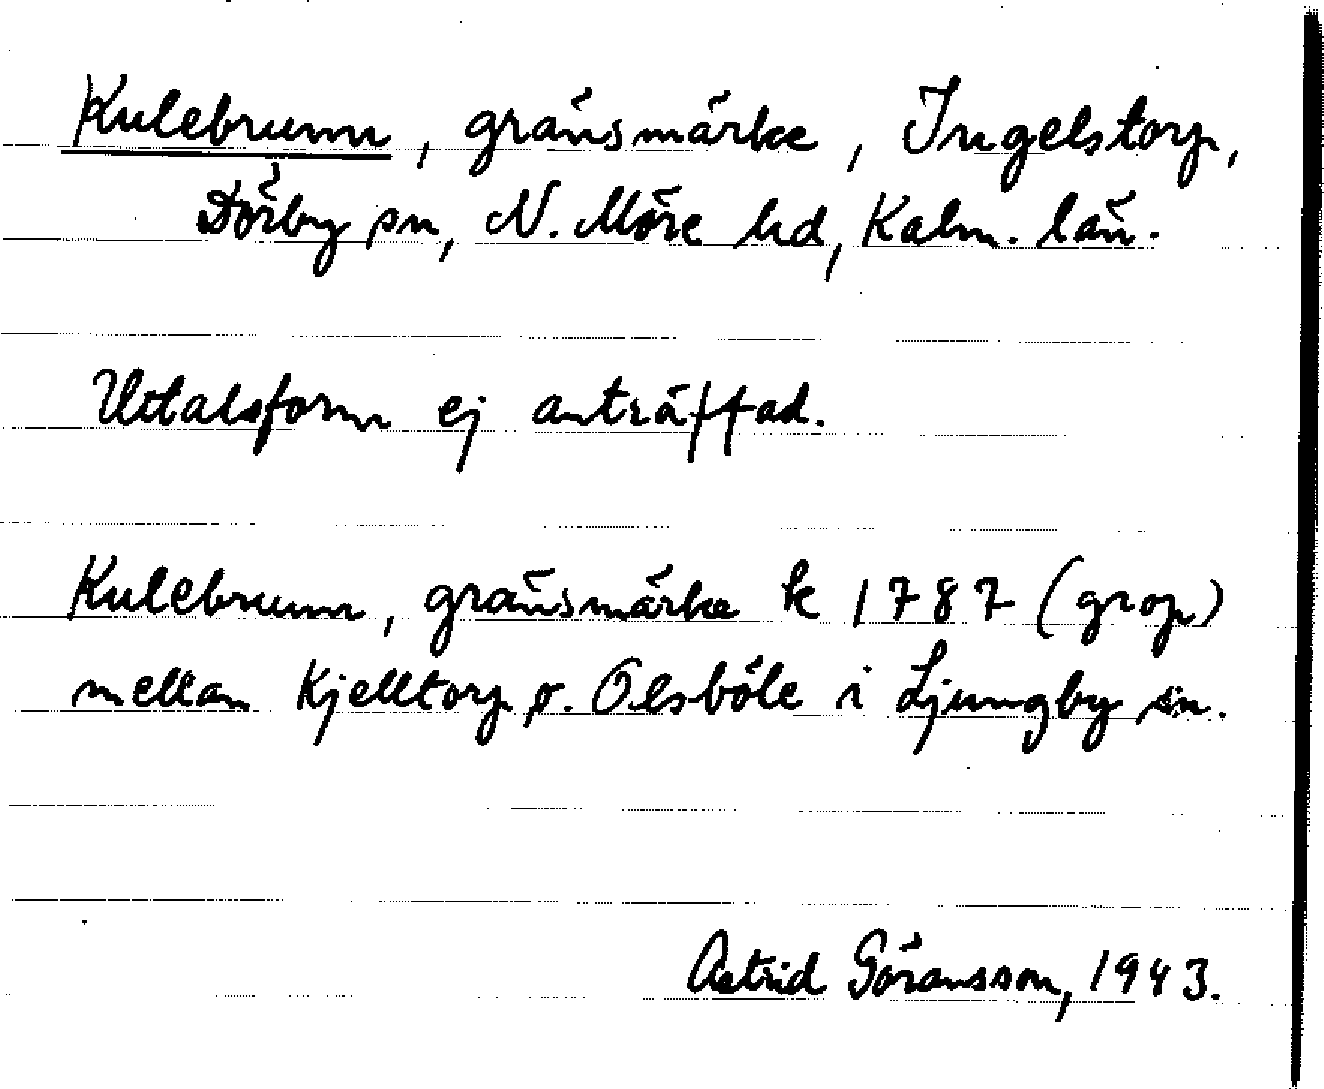 Kulebrunn, gränsmärke, Ingelstorp,
Dörby sn, N. Möre hd, Kalm. län.
Uttalsform ej anträffad.
Kulebrunn, gränsmärke k 1787 (grop)
mellan Kjelltorp o. Olsböle i Ljungby sn.
Astrid Göransson, 1943.